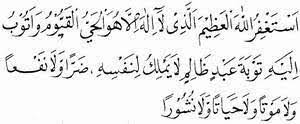 اَسْتَغْفِرُ اللهَ الْعَظِيْمَ الَّذِيْ لَآ اِلٰهَ اِلَّا هُوَ الْحَيُّ الْقَيُّوْمُ وَاَتُوْبُ
اِلَيْهِ تَوْبَةَ عَبْدٍ ظَالِمٍ لَا يَمْلِكُ لِنَفْسِهِ ضَرًّا وَلَا نَفْعًا
وَلَا مَوْتًا وَلَا حَيَاتًا وَلَا نُشُوْرًا